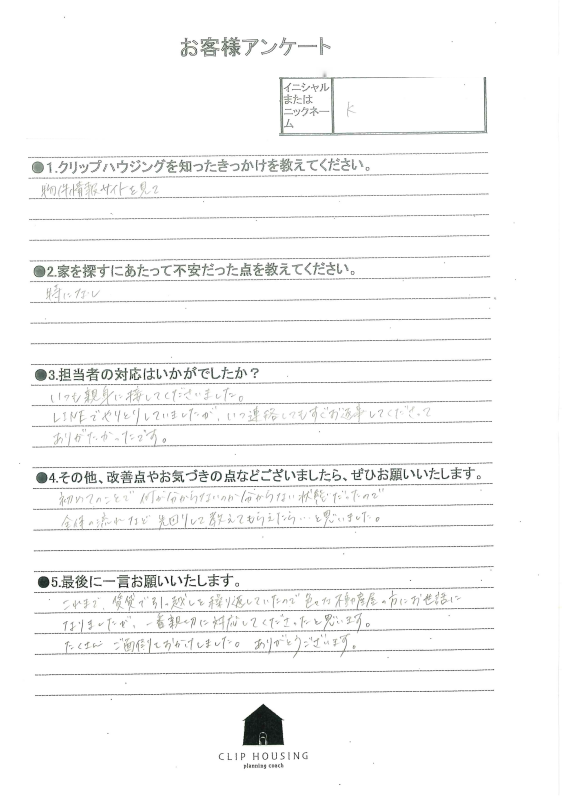 お客様アンケート
イニシャル
または
ニックネー
ム
K
●1.クリップハウジングを知ったきっかけを教えてください。
物件情報サイトを見て
●2.家を探すにあたって不安だった点を教えてください。
特になし
●3.担当者の対応はいかがでしたか？
いつも親身に接してくださいました。
LINEでやりとりしていましたが、いつ連絡してもすぐお返事してくださって
ありがたかったです。
●4.その他、改善点やお気づきの点などございましたら、ぜひお願いいたします。
初めてのことで何が分からないのか分からない状態だったので
全体の流れなど先回りして教えてもらえたら…と思いました。
●5.最後に一言お願いいたします。
これまで、賃貸で引っ越しを繰り返していたので色々な不動産屋の方にお世話に
なりましたが、一番親切に対応してくださったと思います。
たくさん ご面倒もおかけしました。ありがとうございます。
CLIP HOUSING
planning coach